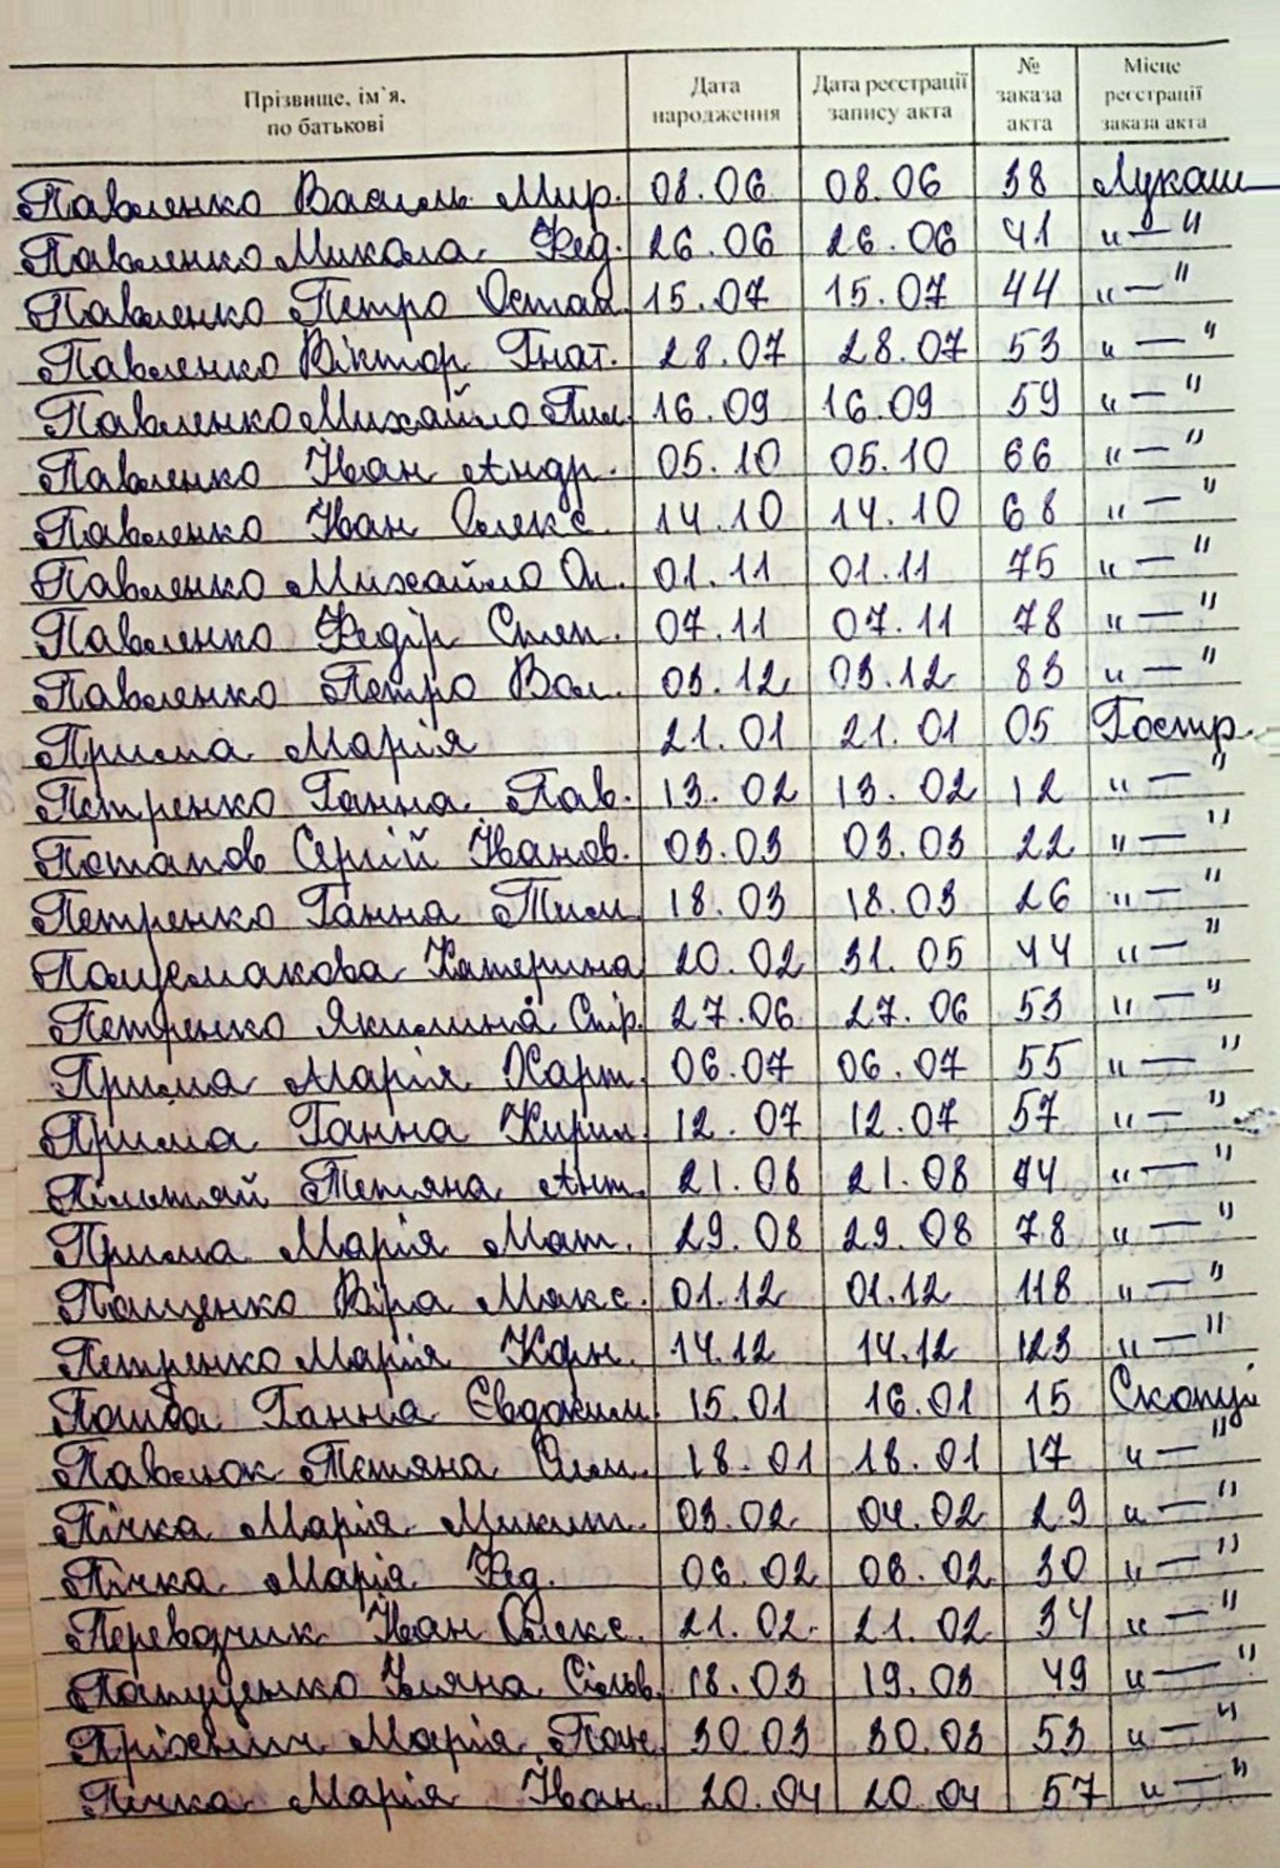 Прізвище, ім`я, по батькові Дата народження Дата реєстрації запису акта № заказа акта Місце реєстрації заказа акта
Павленко Василь Мир. 08.06 08.06 38 Лукаш
Павленко Микола Фед. 26.06 26.06 41 "—"
Павленко Петро Остап. 15.07 15.07 44 "—"
Павленко Віктор Гнат. 28.07 28.07 53 "—"
Павленко Михайло Пил. 16.09 16.09 59 "—"
Павленко Іван Андр. 05.10 05.10 66 "—"
Павленко Іван Олекс. 14.10 14.10 68 "—"
Павленко Михайло Ол. 01.11 01.11 75 "—"
Павленко Федір Степ. 07.11 07.11 78 "—"
Павленко Петро Вол. 03.12 03.12 83 "—"
Прима Марія 21.01 21.01 05 Гостр.
Петренко Ганна Пав. 13.02 13.02 12 "—"
Потапов Сергій Іванов. 03.03 03.03 22 "—"
Петренко Ганна Тим. 18.03 18.03 26 "—"
Катерина 20.02 31.05 44 "—"
Петренко Якилина Спір. 27.06 27.06 53 "—"
Прима Марія Харт. 06.07 06.07 55 "—"
Прима Ганна Кирил. 12.07 12.07 57 "—"
Тетяна Ант. 21.08 21.08 74 "—"
Прима Марія Мат. 29.08 29.08 78 "—"
Пащенко Віра Макс. 01.12 01.12 118 "—"
Петренко Марія Корн. 14.12 14.12 123 "—"
Ганна Євдоким. 15.01 16.01 15
Павлюк Тетяна 18.01 18.01 17 "—"
Пічка Марія Микит. 03.02 04.02 29 "—"
Пічка Марія Фед. 06.02 06.02 30 "—"
Переводчик Іван Олекс. 21.02 21.02 34 "—"
Уляна Сильв. 18.03 19.03 49 "—"
Марія 30.03 30.03 53 "—"
Пічка Марія Іван. 20.04 20.04 57 "—"